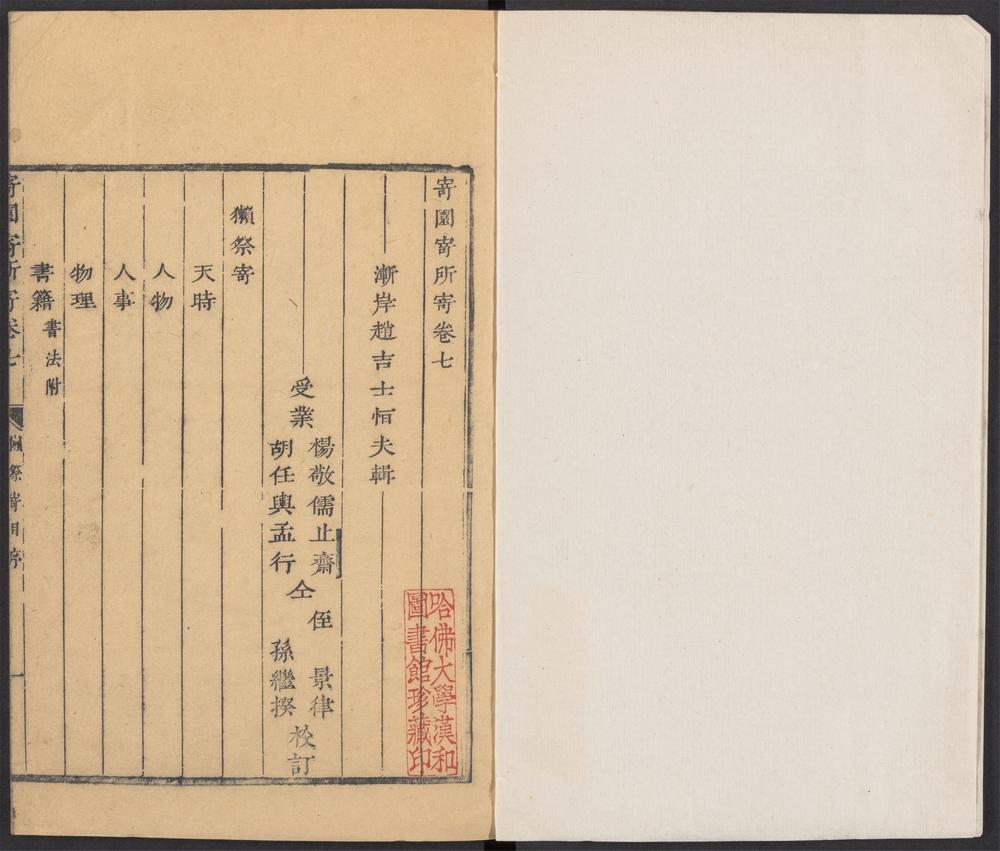 寄園寄所寄卷七
漸岸趙吉士恒夫輯
受業
楊敬儒止齋
胡任輿孟行
仝
侄 景律
孫繼揆
校訂
獺祭寄
天時
人物
人事
物理
書籍書法附
寄園寄所寄卷七
獺祭寄目
一
哈佛大學漢和
圖書館珍藏印